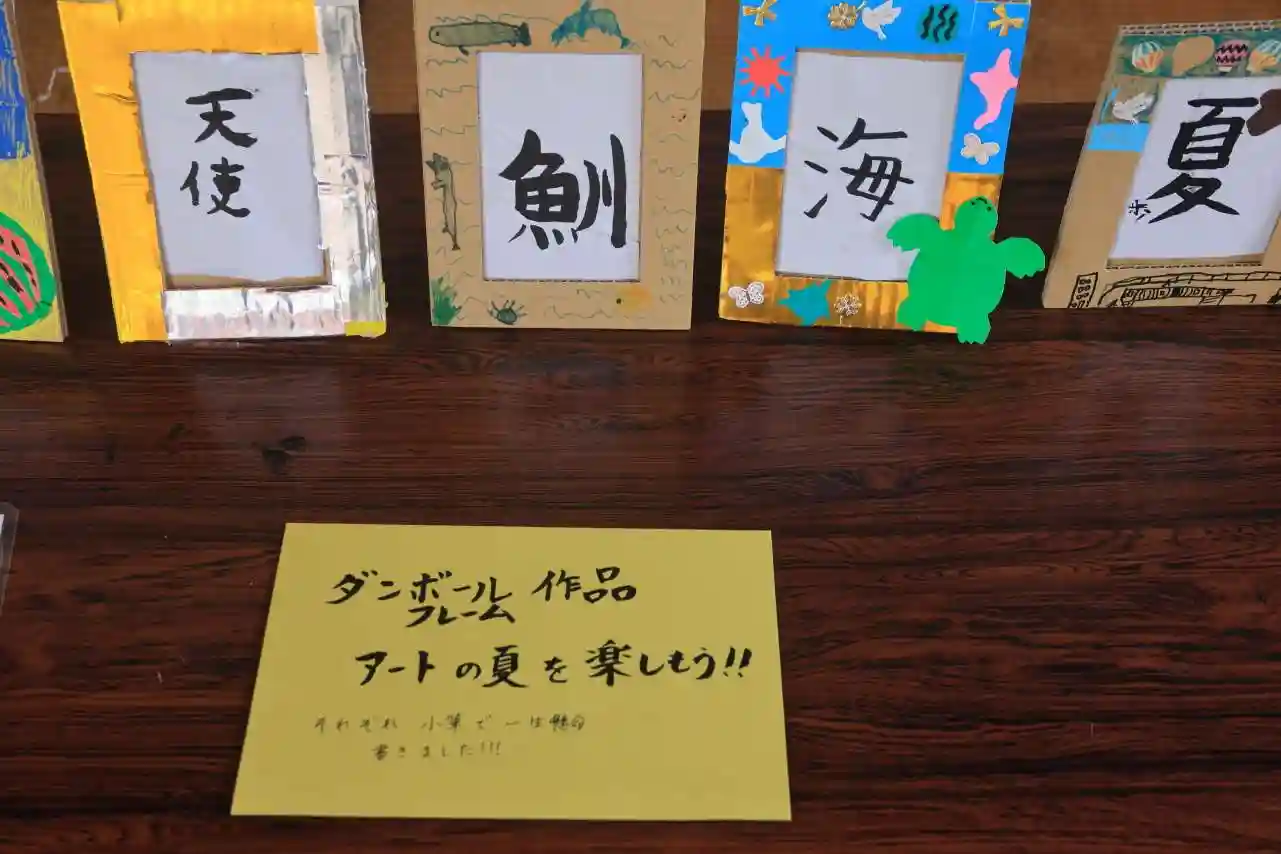 天使
海
夏
ダンボール 作品
フレーム
アートの夏を楽しもう!!
それぞれ 小筆で一生懸命
書きました!!!